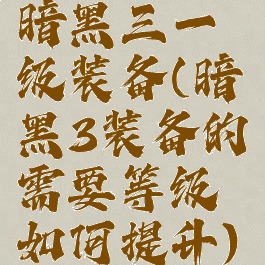 暗黑三一
级装备(暗
黑3装备的
需要等级
如何提升)